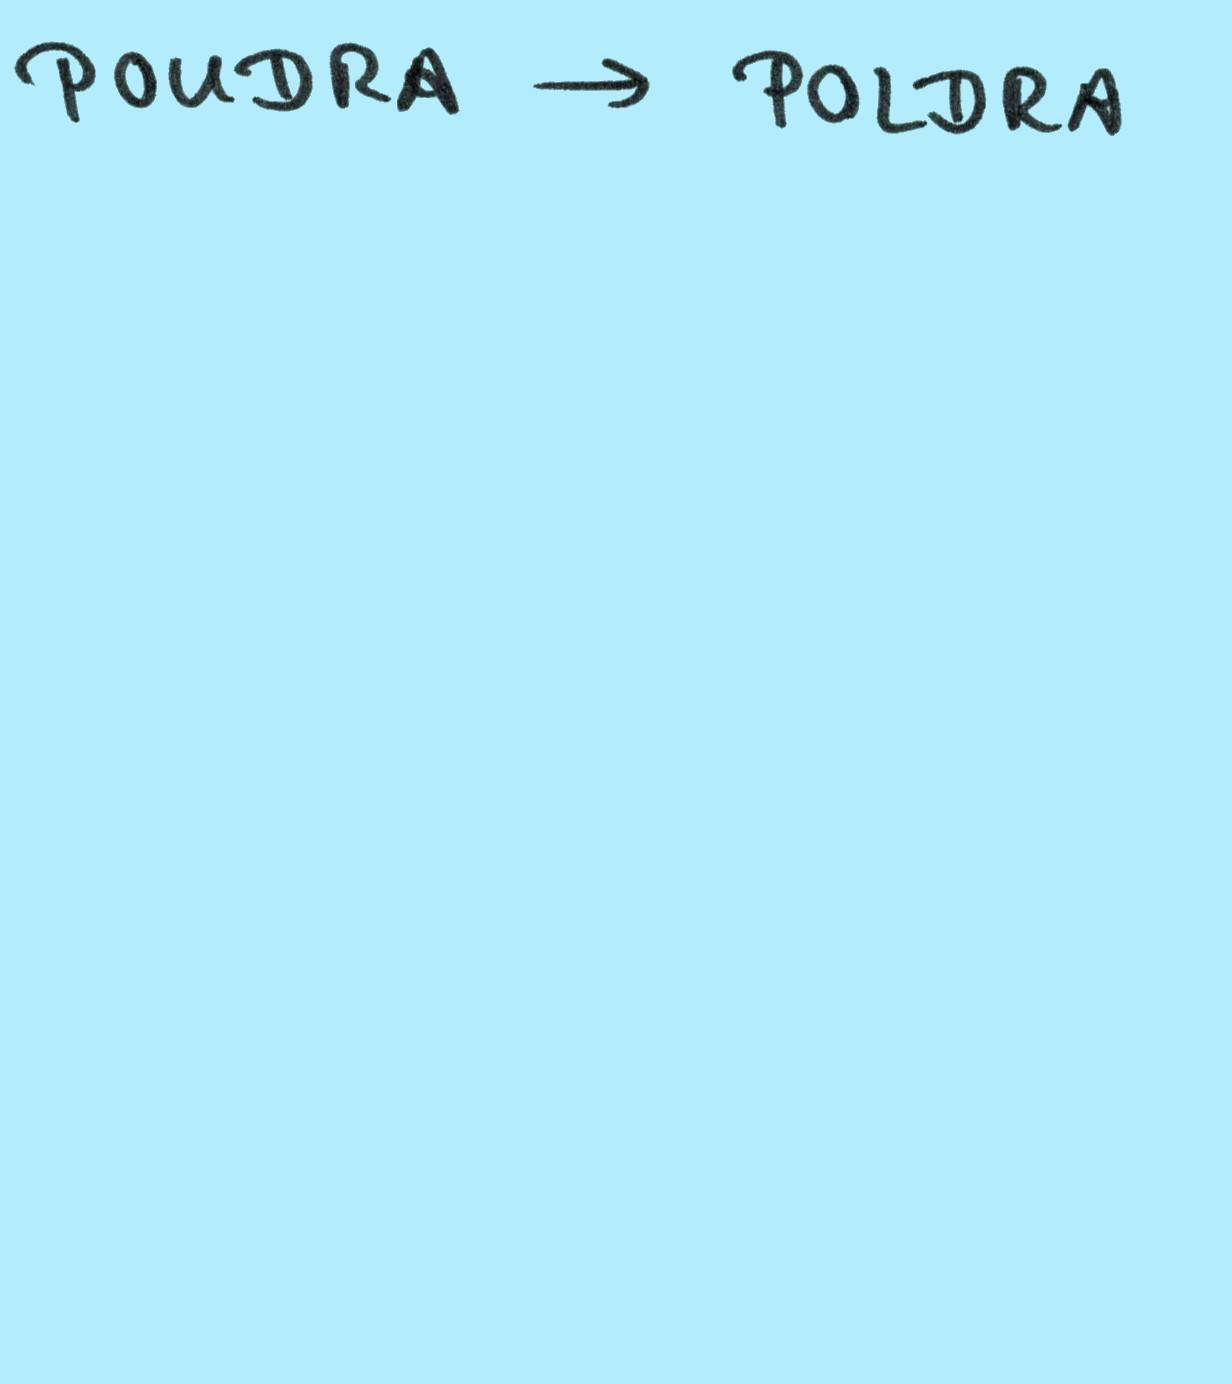 POUDRA → POLDRA